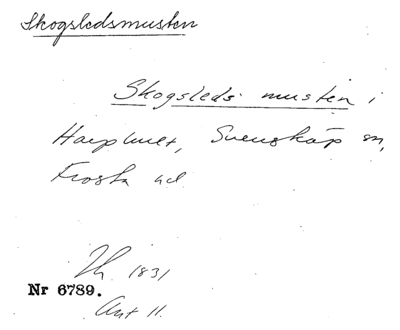 Skogsledsmusten
Skogsleds musten i
Harphult, Svensköp sn,
Frosta hd.
Lh. 1831
Nr 6789.
Akt 11.